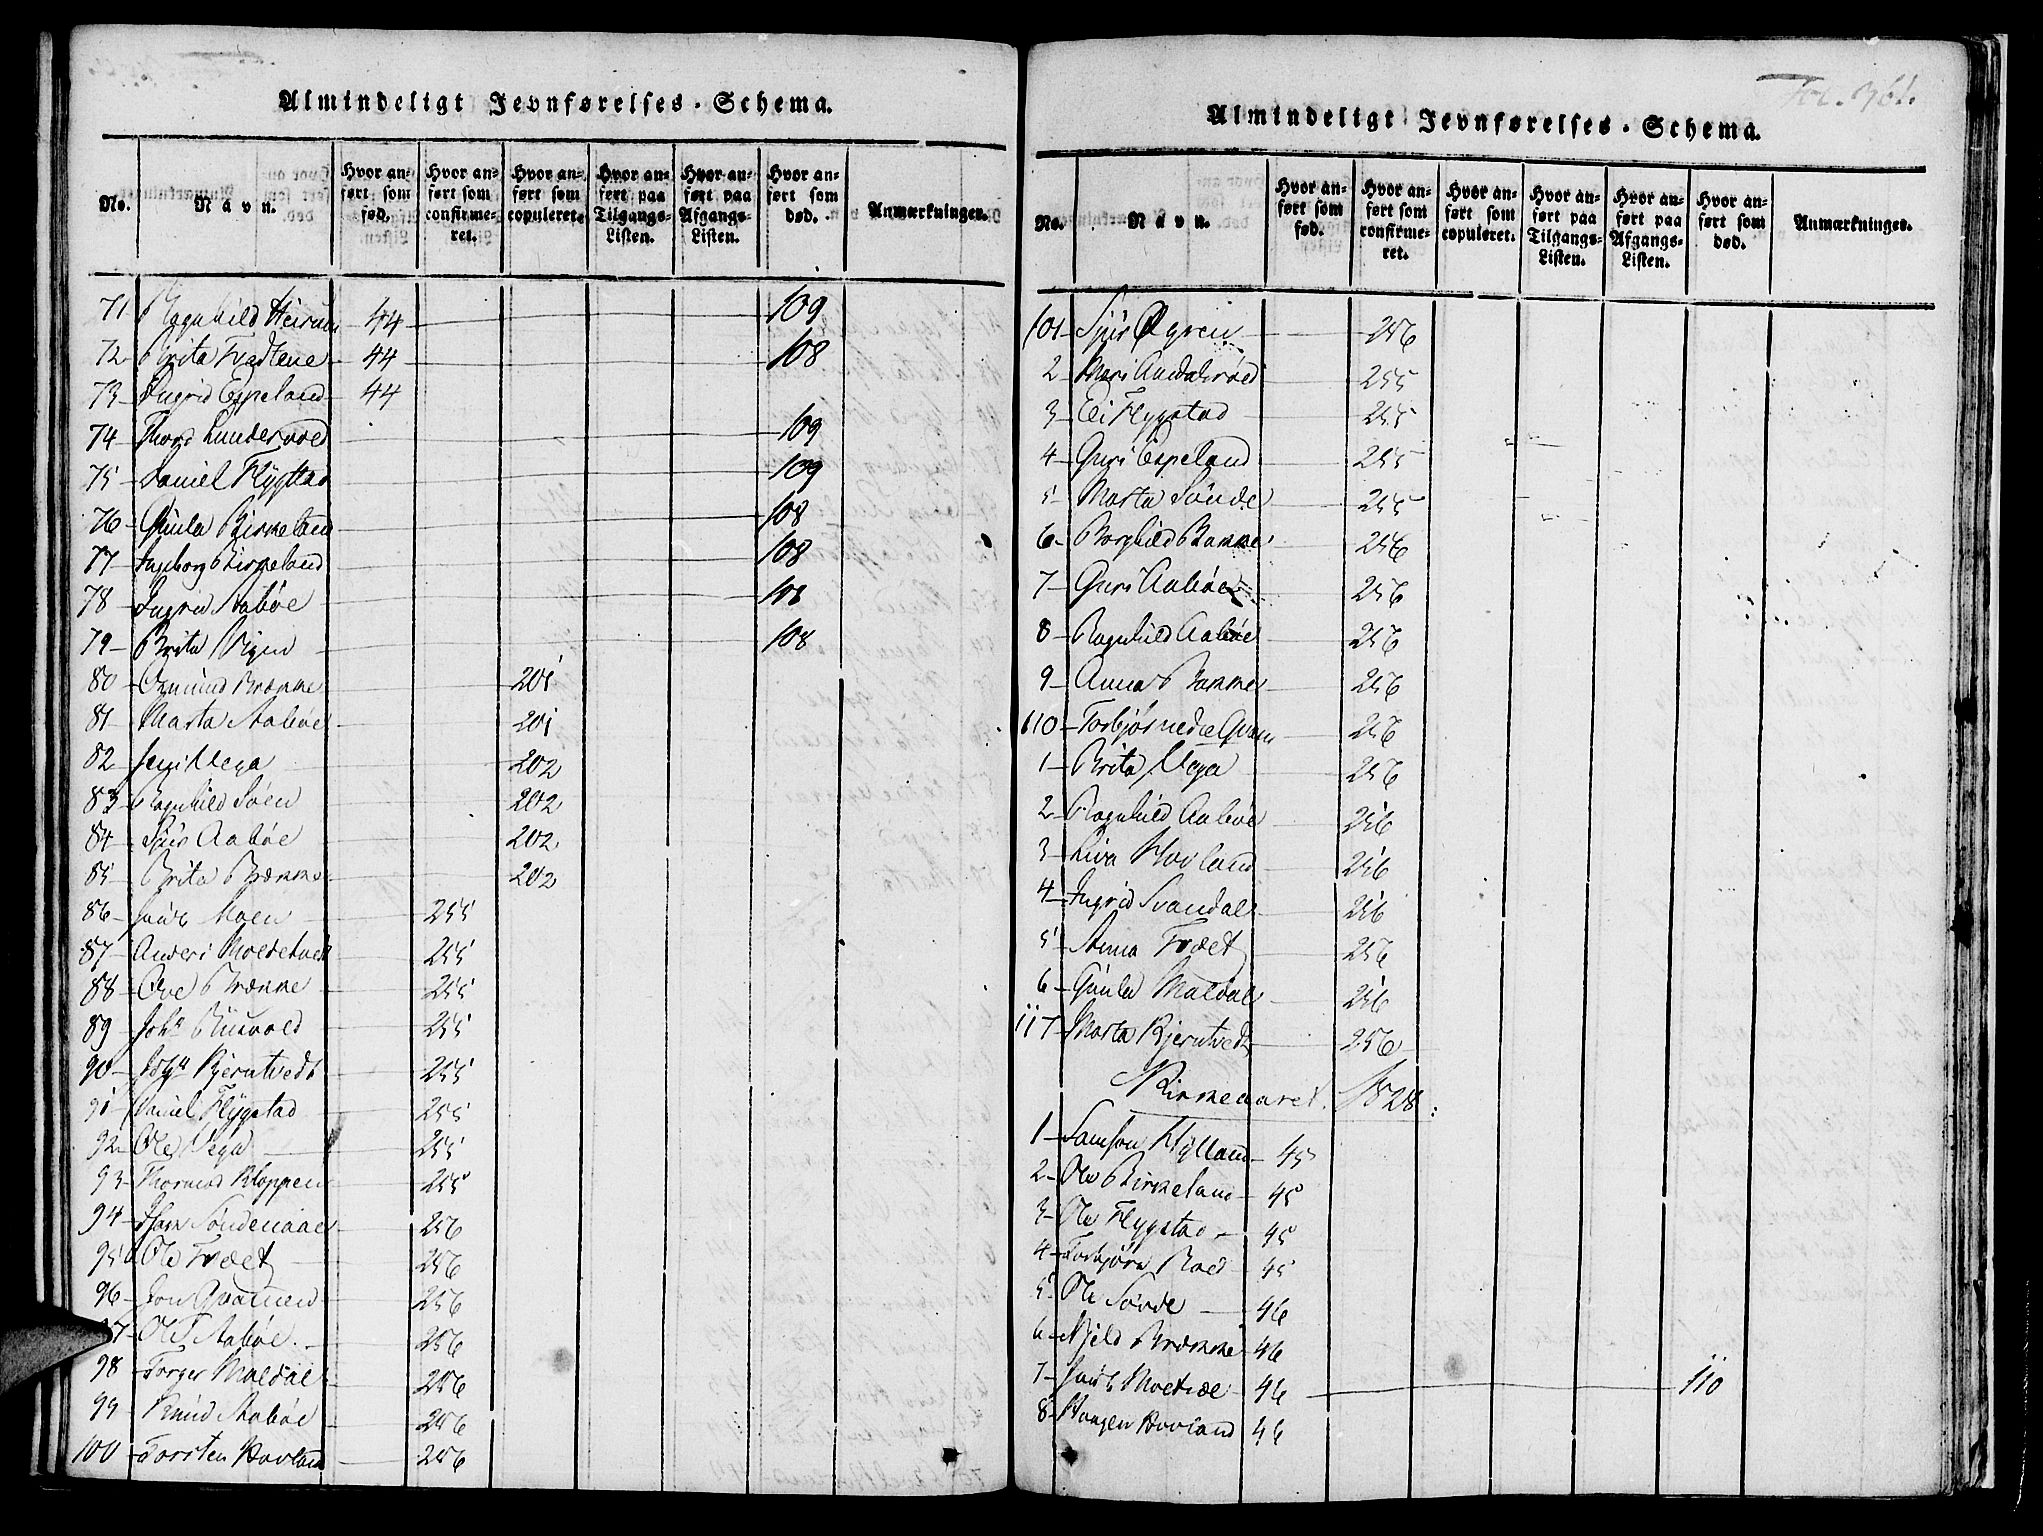 Almindeligt Jevnførelses-Schema.
No. Navn. Hvor anført som fød. Hvor anført som confirmeret. Hvor anført som copuleret. Hvor anført paa Tilgangs-Listen. Hvor anført paa Afgangs-Listen. Hvor anført som død. Anmærkninger.
71 Ragnhild 44 109
72 Brita 44 108
73 Ingrid Espeland 44
74 109
75 Daniel Flygstad 109
76 Gunla Birkeland 108
77 Ingeborg Birkeland 108
78 Ingrid Aabøe 108
79 Brita 108
80 Osmund Brække 201
81 Marta Aabøe 201
82 Vega 202
83 Ragnhild Søen 202
84 Siur Aabøe 202
85 Brita Brække 202
86 Moen 255
87 Anders 255
88 Ove Brække 255
89 Joh: 255
90 Joh: Kjerntvedt 255
91 Daniel Flygstad 255
92 Ole Vega 255
93 Thormod Kloppen 255
94 Søndenaae 256
95 Ole Trædet 256
96 Jon Qvamen 256
97 Ole Aabøe 256
98 Torger Maldal 256
99 Knud Aabøe 256
100 Torsten Hovland 256
Almindeligt Jevnførelses-Schema.
Fol. 361.
No. Navn. Hvor anført som fød. Hvor anført som confirmeret. Hvor anført som copuleret. Hvor anført paa Tilgangs-Listen. Hvor anført paa Afgangs-Listen. Hvor anført som død. Anmærkninger.
101 Siur 256
2 Mari 255
3 Eli Flygstad 255
4 Guri Espeland 255
5 Marta Søvde 255
6 Borghild Bakke 256
7 Guri Aabøe 256
8 Ragnhild Aabøe 256
9 Anna Bakke 256
110 256
1 Brita Vega 256
2 Ragnhild Aabøe 256
3 Liva Hovland 256
4 Ingrid Svandal 256
5 Anna Trædet 256
6 Gunla Maldal 256
117 Marta Kjerntvedt 256
Kirkeaaret 1828:
1 Samson Hylland 45
2 Ole Birkeland 45
3 Ole Flygstad 45
4 Torbjørn Roed 45
5 Ole Søvde 46
6 Kjeld Brække 46
7 46 110
8 Haagen Hovland 46